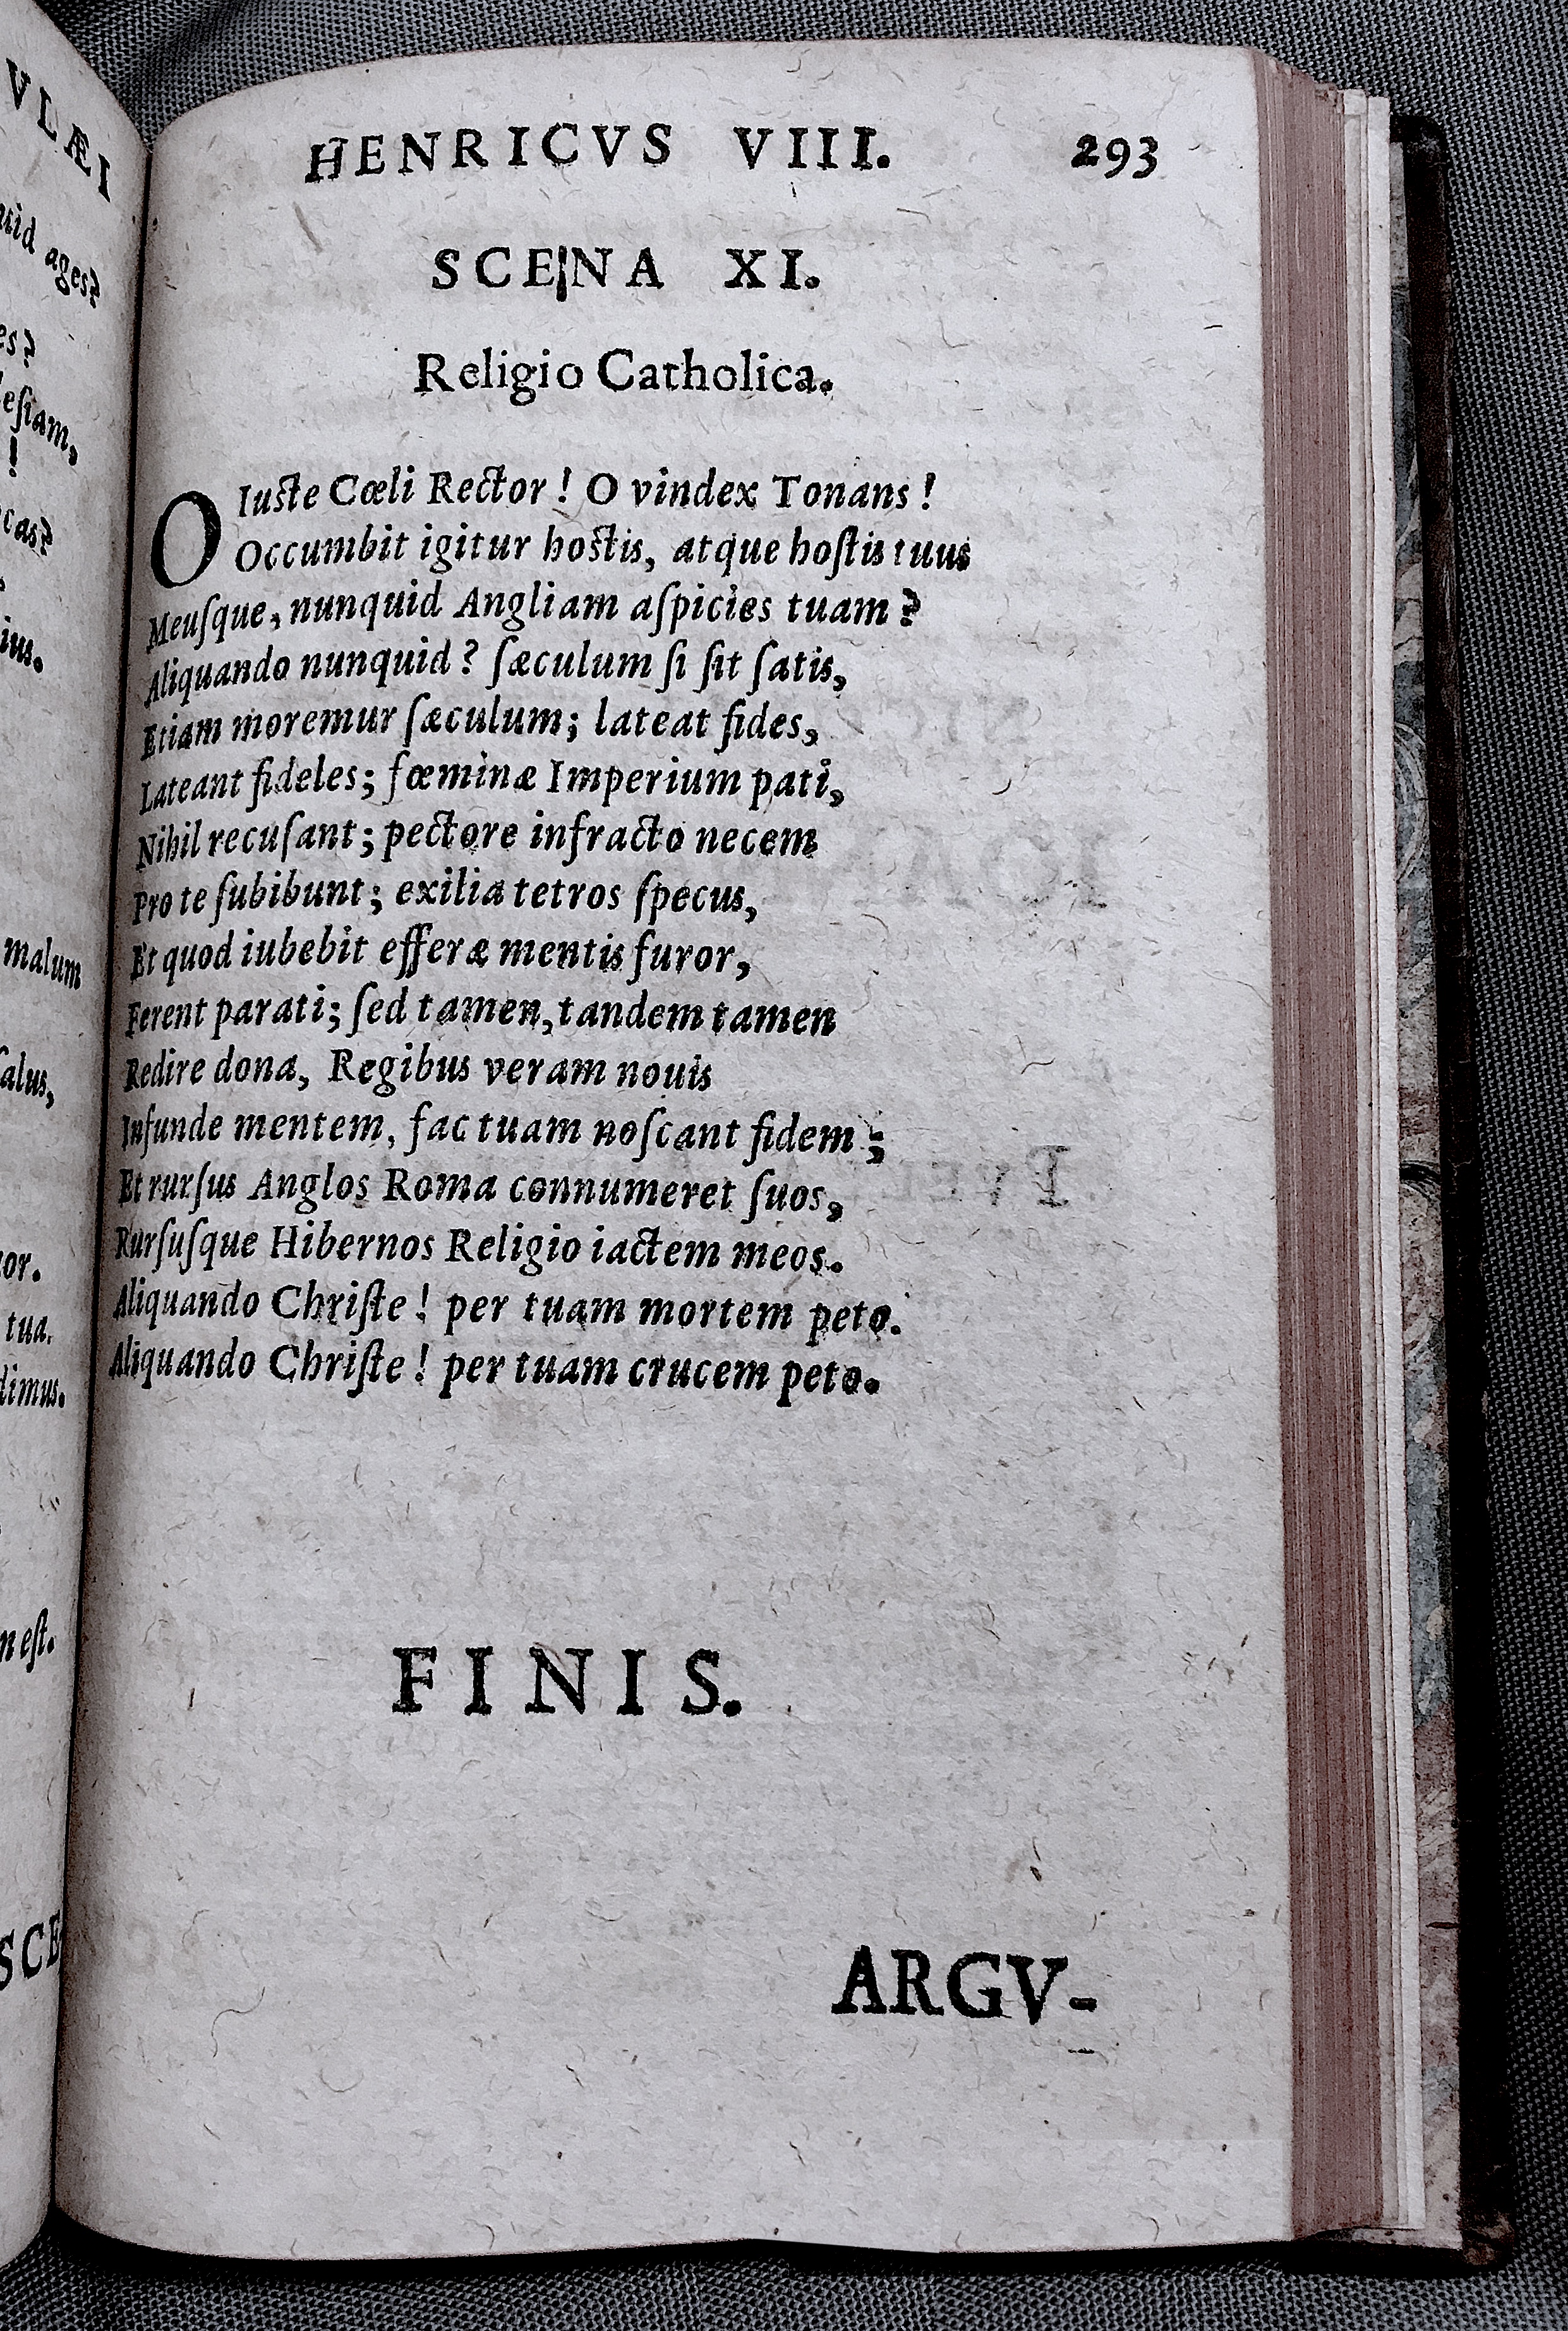 VLÆI
uid ages?
es?
lesiam,
!
cas?
ius.
malum
salus,
or.
tua.
dimus.
n est.
SCE
HENRICVS VIII. 293
SCENA XI.
Religio Catholica.
O Iuste Cœli Rector! O vindex Tonans!
Occumbit igitur hostis, atque hoſtis tuus
Meuſque, nunquid Angliam aſpicies tuam?
Aliquando nunquid? ſæculum ſi ſit ſatis,
Etiam moremur ſæculum; lateat fides,
Lateant fideles; fœminæ Imperium pati,
Nihil recuſant; pectore infracto necem
Pro te ſubibunt; exilia tetros ſpecus,
Et quod iubebit efferæ mentis furor,
Ferent parati; ſed tamen, tandem tamen
Redire dona, Regibus veram nouis
Infunde mentem, fac tuam noſcant fidem;
Et rurſus Anglos Roma connumeret ſuos,
Rurſuſque Hibernos Religio iactem meos.
Aliquando Chriſte! per tuam mortem peto.
Aliquando Chriſte! per tuam crucem peto.
FINIS.
ARGV-